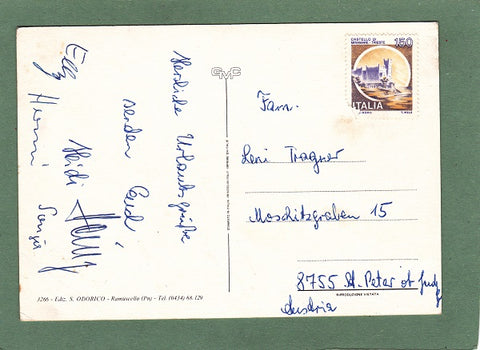 Herzliche Urlaubsgrüße
senden Euch
Heidi
Elly
Hermi
Sonja
1266 - Ediz. S. ODORICO - Ramuscello (Pn) - Tel. (0434) 68.129
GMC
CASTELLO DI
MIRAMARE. TRIESTE
150
ITALIA
Fam.
Leni Tragner
Moschitzgraben 15
8755 St. Peter ob Judbg
Austria
RIPRODUZIONE VIETATA